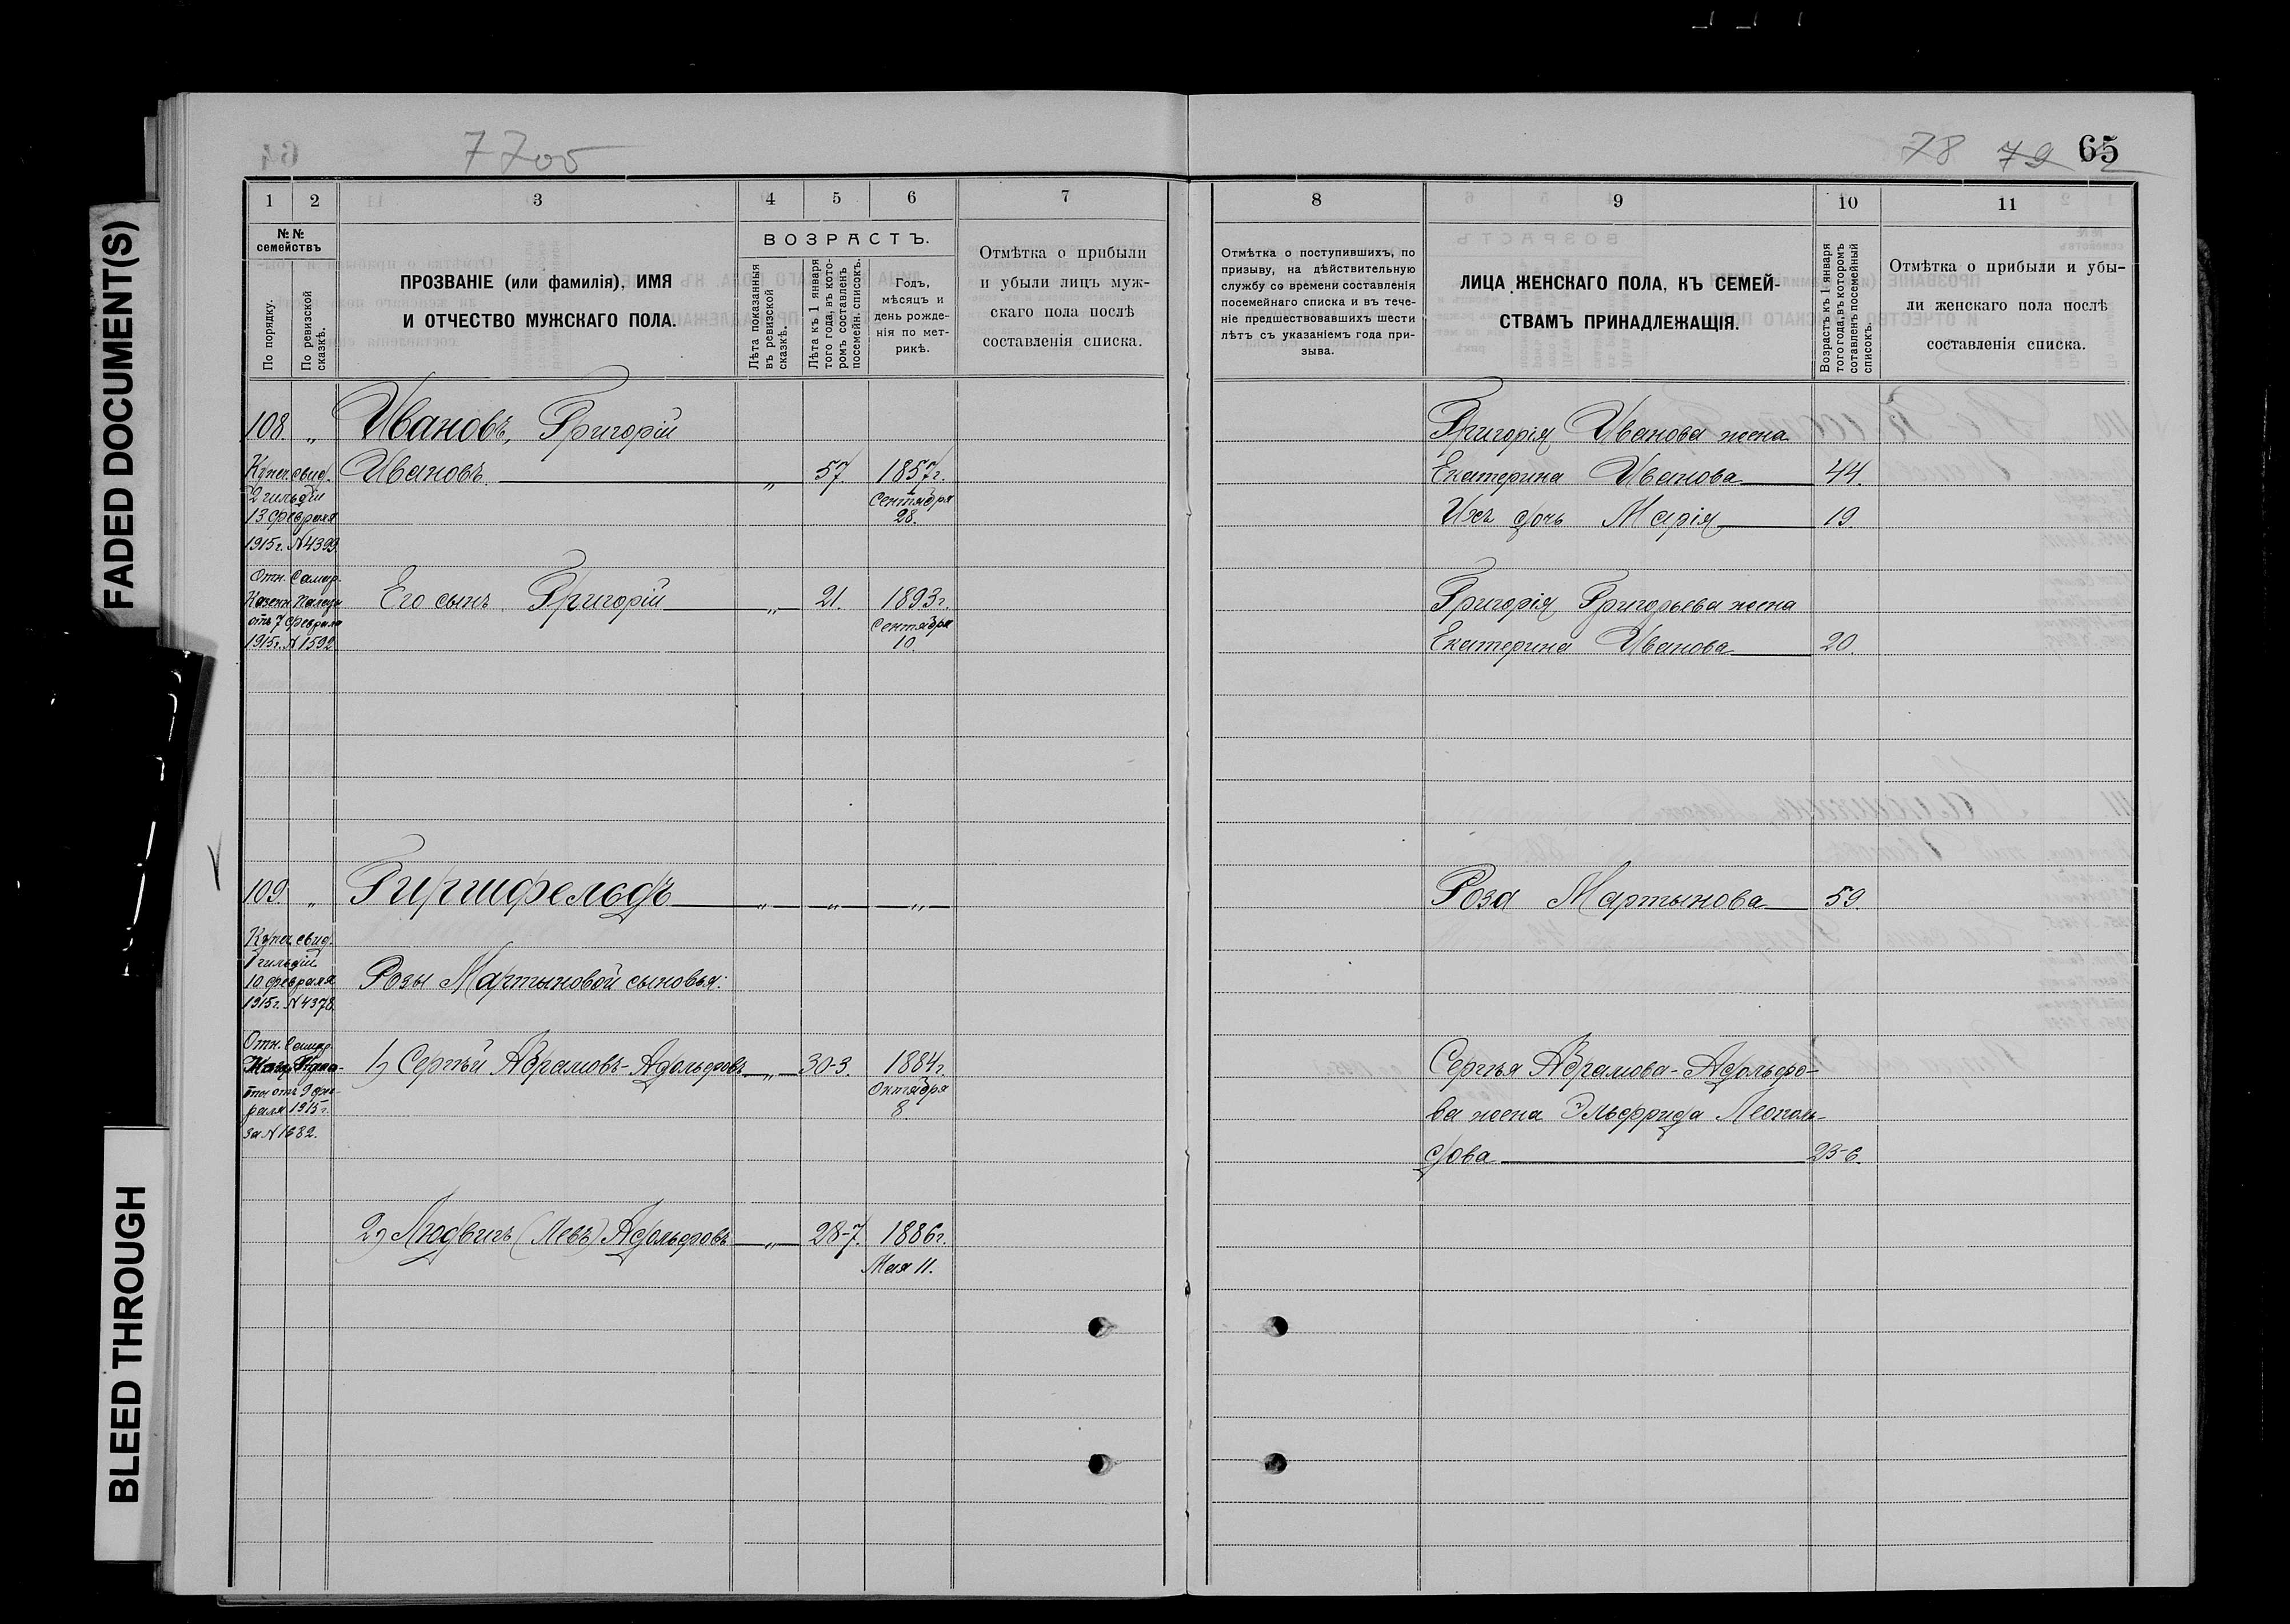 FADED DOCUMENT(S)
BLEED THROUGH
7705
78 79 65
1 2 3 4 5 6 7
№№ семействъ
По порядку.
По ревизской сказкѣ.
ПРОЗВАНІЕ (или фамилія), ИМЯ
И ОТЧЕСТВО МУЖСКАГО ПОЛА.
ВОЗРАСТЪ.
Лѣта показанныя въ ревизской сказкѣ.
Лѣта къ 1 января того года, въ кото-ромъ составленъ посемейн. списокъ.
Годъ,
мѣсяцъ и
день рожде-
нія по мет-
рикѣ.
Отмѣтка о прибыли
и убыли лицъ муж-
скаго пола послѣ
составленія списка.
8 9 10 11
Отмѣтка о поступившихъ, по
призыву, на дѣйствительную
службу со времени составленія
посемейнаго списка и въ тече-
ніе предшествовавшихъ шести
лѣтъ съ указаніемъ года при-
зыва.
ЛИЦА ЖЕНСКАГО ПОЛА, КЪ СЕМЕЙ-
СТВАМЪ ПРИНАДЛЕЖАЩІЯ.
Возрастъ къ 1 января того года, въ которомъ составленъ посемейный списокъ.
Отмѣтка о прибыли и убы-
ли женскаго пола послѣ
составленія списка.
108. „ Ивановъ, Григорій
Ивановъ „ 57. 1857 г.
Сентября
28.
Купеч. свид.
2 гильдіи
13 февраля
1915 г. №4399
Отн. Самар.
Казенн. Палаты
отъ 7 февраля
1915 г. №1592
Его сынъ Григорій „ 21. 1893 г.
Сентября
10.
Григорія Иванова жена
Екатерина Иванова 44.
Ихъ дочь Марія 19.
Григорія Григорьева жена
Екатерина Иванова 20.
109. „ Гиршфельдъ „ „ „
Роза Мартынова 59.
Купеч. свид.
1 гильдіи
10 февраля
1915 г. №4378.
Розы Мартыновой сыновья:
Отн. Самар.
отъ 9 фев-
раля 1915 г.
за №1682.
1) Сергѣй Абрамовъ-Адольфовъ „ 30-3. 1884 г.
Октября
8.
Сергѣя Абрамова-Адольфо-
ва жена Эльфрида Леополь-
дова 23-6.
2) Людвигъ (Левъ) Адольфовъ „ 28-7. 1886 г.
Мая 11.